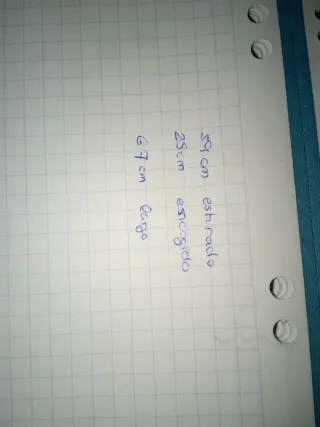 59 cm estirado
25 cm escogido
67 cm largo